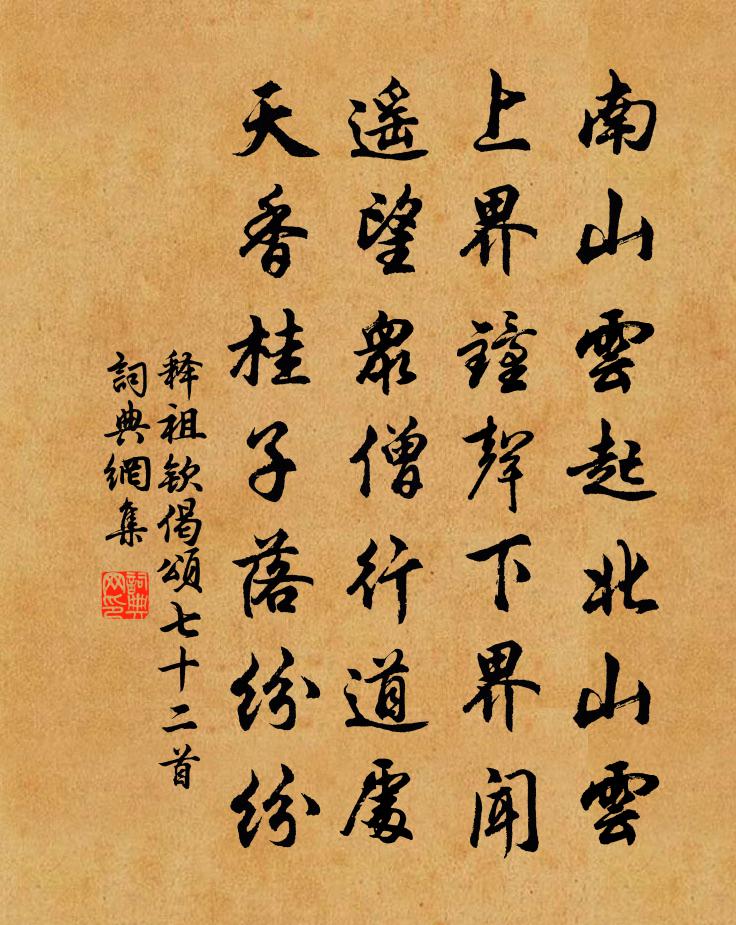 南山雲起北山雲
上界鐘聲下界聞
遥望衆僧行道處
天香桂子落紛紛
释祖钦偈頌七十二首
詞典網集
詞典網印